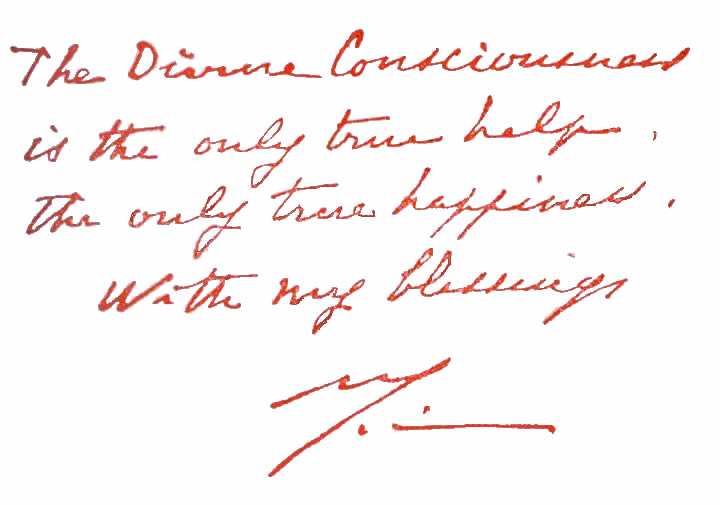 The Divine Consciousness
is the only true help,
the only true happiness.
With my blessings